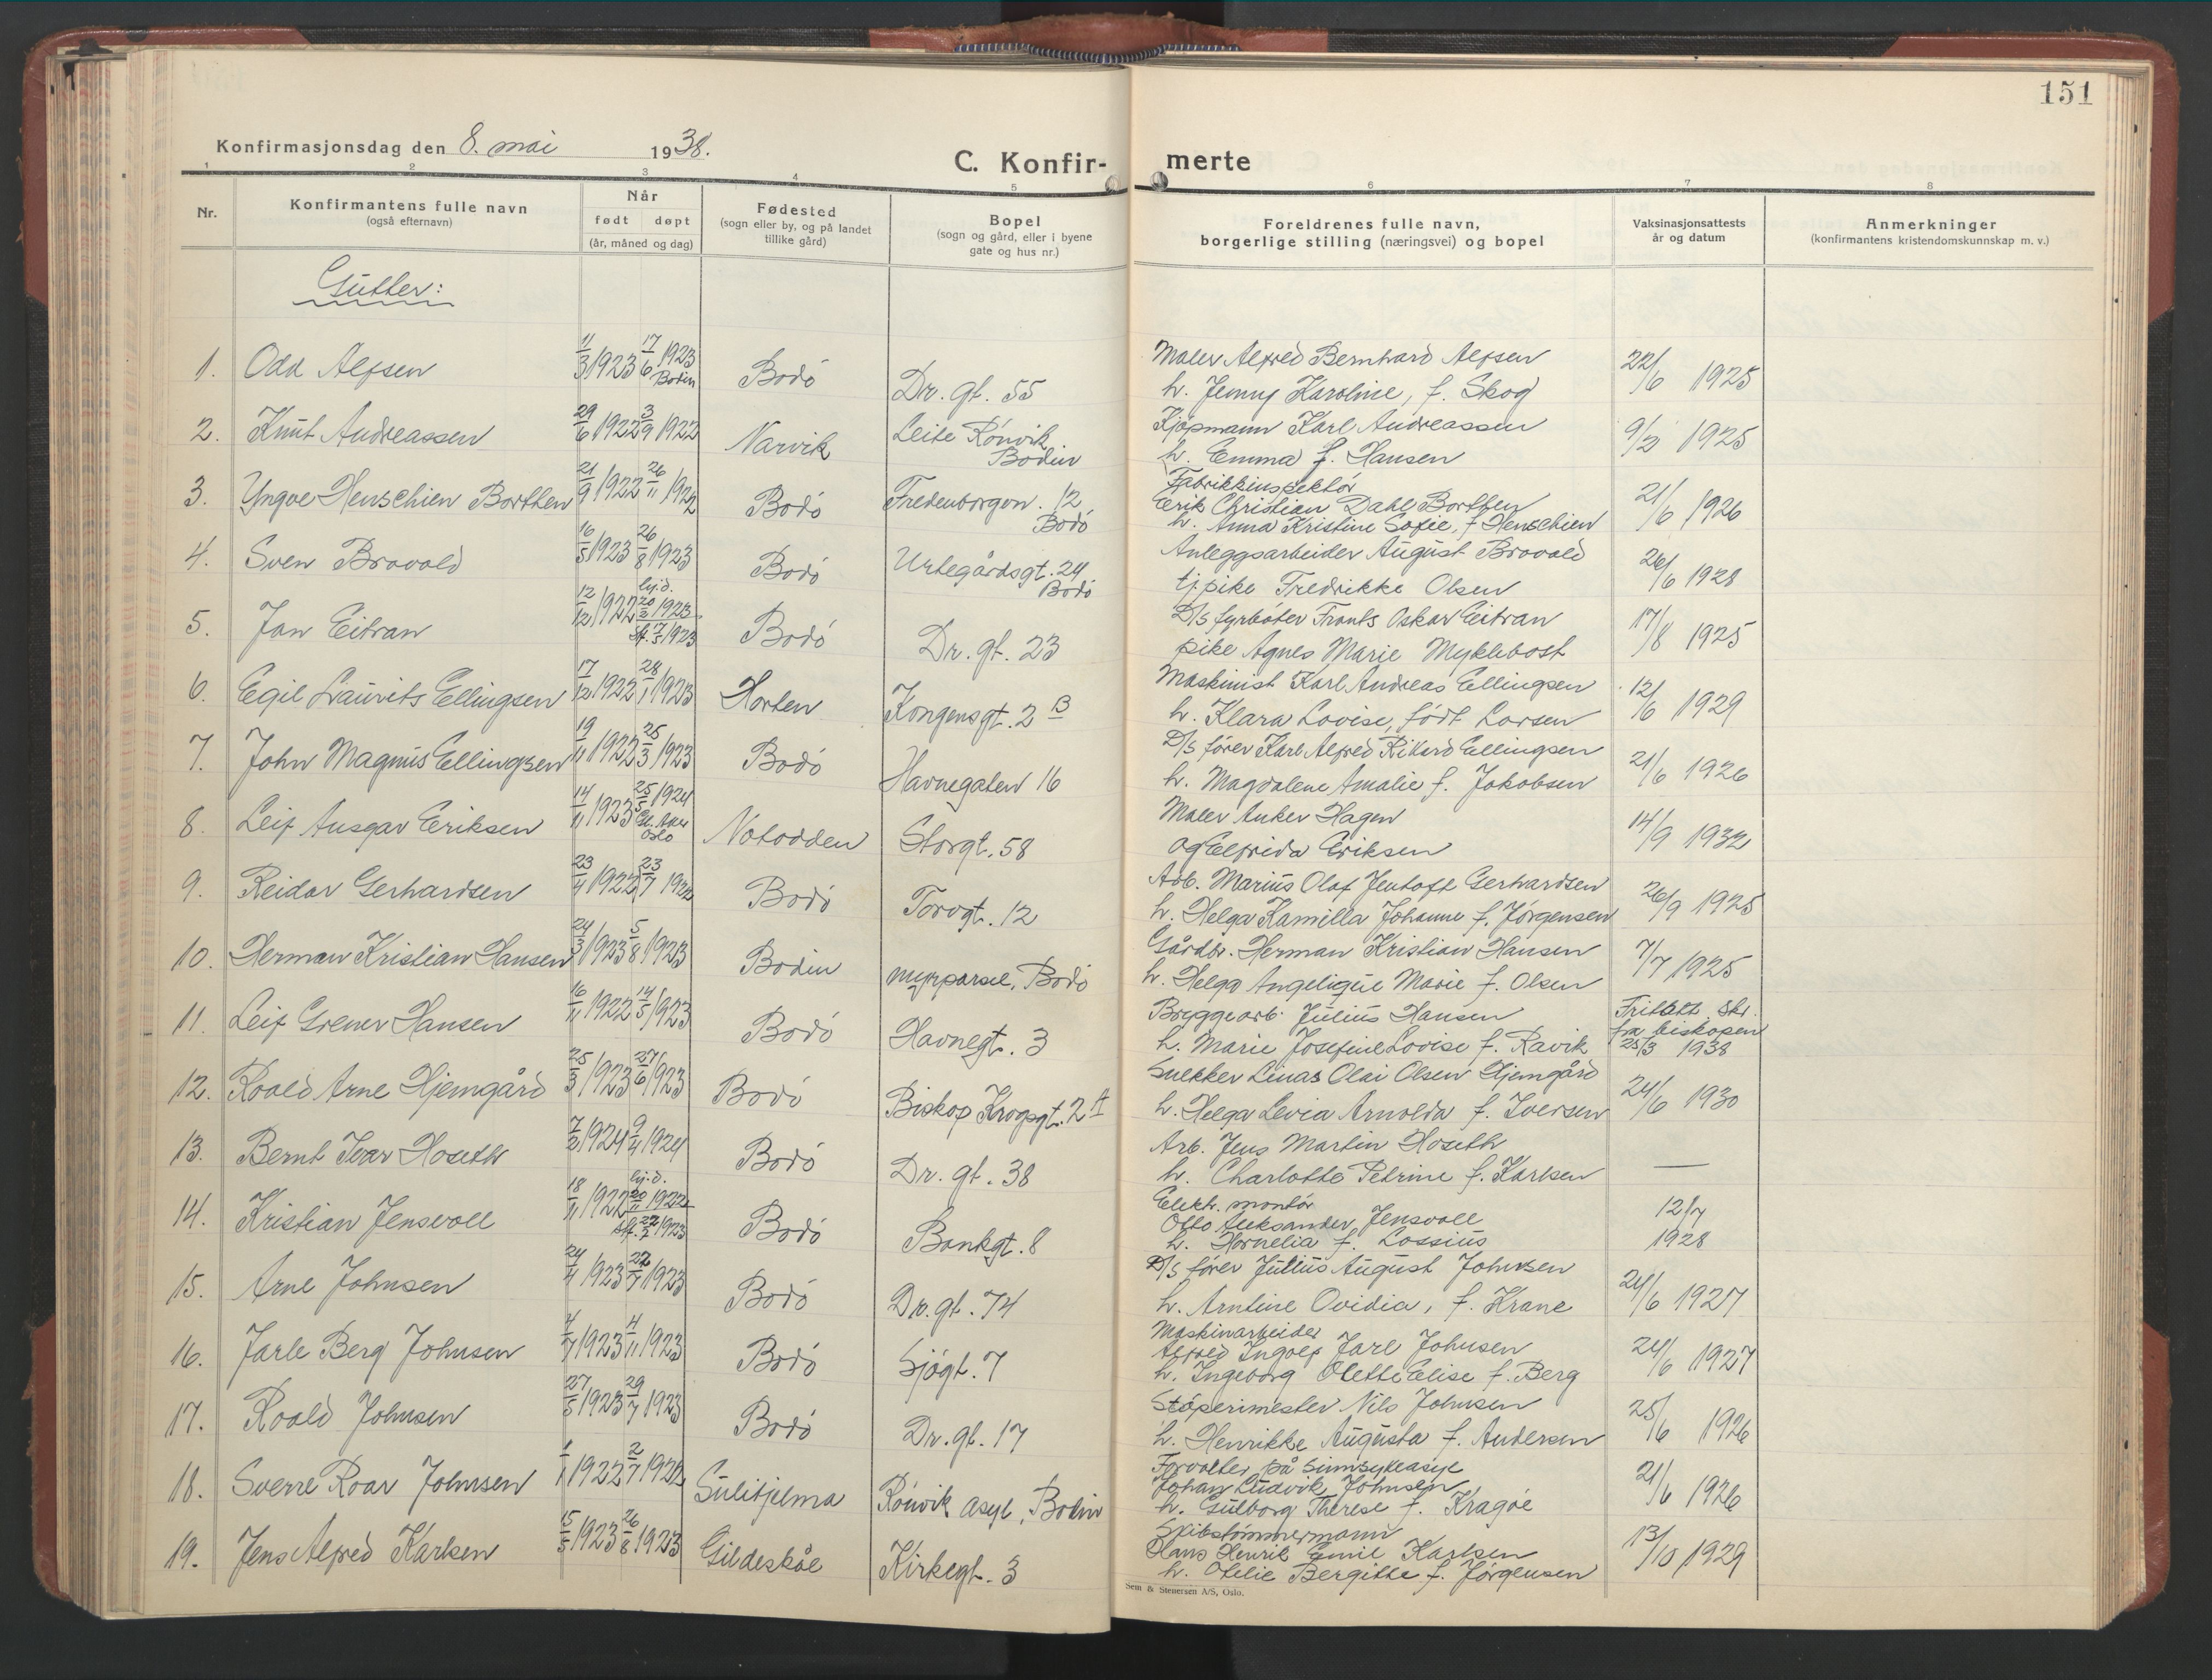 151
Konfirmasjonsdag den 8. mai 1938.
C. Konfir- merte
1 2 3 4 5 6 7 8
Nr.
Konfirmantens fulle navn
(også efternavn)
Når
født døpt
(år, måned og dag)
Fødested
(sogn eller by, og på landet
tillike gård)
Bopel
(sogn og gård, eller i byene
gate og hus nr.)
Foreldrenes fulle navn,
borgerlige stilling (næringsvei) og bopel
Vaksinasjonsattests
år og datum
Anmerkninger
(konfirmantens kristendomskunnskap m. v.)
Gutter:
1. Odd Alfsen 11/3 1923 17/6 1923 Bodin Bodó Dr. gt. 55
Maler Alfred Bernhard Alfsen
h. Jenny Karoline, f. Skog
22/6 1925
2. Knut Andreassen 29/6 1922 3/9 1922 Narvik Leite Rónvik. Bodin
Kjøpmann Karl Andreassen
h. Emma f. Hansen
9/2 1925
3. Yngve Henschien Borthen 21/9 1922 26/11 1922 Bodó Fredensborgvn. 12 Bodó
Fabrikkinspektór
Erik Christian Dahl Borthen
h. Anna Kristine Sofie, f. Henschien
21/6 1926
4. Sven Brovold 16/5 1923 26/8 1923 Bodó Urtegårdsgt. 24 Bodó
Anleggsarbeider August Brovold
tj. pike Fredrikke Olsen
26/6 1928
5. Jan Eitran 12/12 1922 hj.d. 20/2 1923 st. 7/5 1923 Bodó Dr. gt. 23
D/S fyrbóter Frants Oskar Eitran
pike Agnes Marie Myklebost
17/8 1925
6. Egil Laurits Ellingsen 17/12 1922 28/1 1923 Horten Kongensgt. 2 B
Maskinist Karl Andreas Ellingsen
h. Klara Lovise, født Larsen
12/6 1929
7. John Magnus Ellingsen 19/11 1922 25/3 1923 Bodó Havnegaten 16
D/S fórer Karl Alfred Rikard Ellingsen
h. Magdalene Amalie f. Jakobsen
21/6 1926
8. Leif Ansgar Eriksen 14/11 1923 25/5 1924 Gl. Aker Oslo Notodden Storgt. 58
Maler Anker Hagen
og Elfrida Eriksen
14/9 1932
9. Reidar Gerhardsen 23/4 1922 23/7 1922 Bodó Torvgt. 12
Arb. Marius Olaf Jentoft Gerhardsen
h. Helga Kamilla Johanne f. Jórgensen
26/9 1925
10. Herman Kristian Hansen 24/3 1923 5/8 1923 Bodin Myrparsel, Bodó
Gårdbr. Herman Kristian Hansen
h. Helga Angelique Marie f. Olsen
7/7 1925
11. Leif Grener Hansen 16/11 1922 14/5 1923 Bodó Havnegt. 3
Bryggearb. Julius Hansen
h. Marie Josefine Lovise f. Ravik
Fritatt, skr.
fra biskopen
25/3 1938
12. Roald Arne Hjemgård 25/3 1923 27/6 1923 Bodó Biskop Krogsgt. 2 A
Snekker Linas Olai Olsen Hjemgård
h. Helga Levia Arnolda f. Iversen
24/6 1930
13. Bernt Ivar Hoseth 7/2 1924 9/4 1924 Bodó Dr. gt. 38
Arb. Jens Martin Hoseth
h. Charlotte Petrine f. Karlsen
—
14. Kristian Jensvoll 18/11 1922 hj.d. 20/11 1922 st. 22/7 1923 Bodó Bankgt. 8
Elektr. montór
Otto Aleksander Jensvoll
h. Kornelia f. Lossius
12/7
1928
15. Arne Johnsen 24/4 1923 22/7 1923 Bodó Dr. gt. 74
D/S fórer Julius August Johnsen
h. Arntine Ovidia, f. Krane
24/6 1927
16. Jarle Berg Johnsen 4/7 1923 4/11 1923 Bodó Sjógt. 7
Maskinarbeider
Alfred Ingolf Jarl Johnsen
h. Ingeborg Olette Elise f. Berg
24/6 1927
17. Roald Johnsen 27/5 1923 29/7 1923 Bodó Dr. gt. 17
Stóperimester Nils Johnsen
h. Henrikke Augusta f. Andersen
25/6 1926
18. Sverre Roar Johnsen 1/1 1922 2/7 1922 Sulitjelma Rónvik asyl, Bodin
Forvalter på Sinnsykeasyl
Johan Ludvik Johnsen
h. Gulborg Therese f. Kragóe
21/6 1926
19. Jens Alfred Karlsen 15/5 1923 26/8 1923 Gildeskål Kirkegt. 3
Skibstómmermann
Hans Henrik Emil Karlsen
h. Otelie Bergitte f. Jórgensen
13/10 1929
Sem & Stenersen A/S, Oslo.